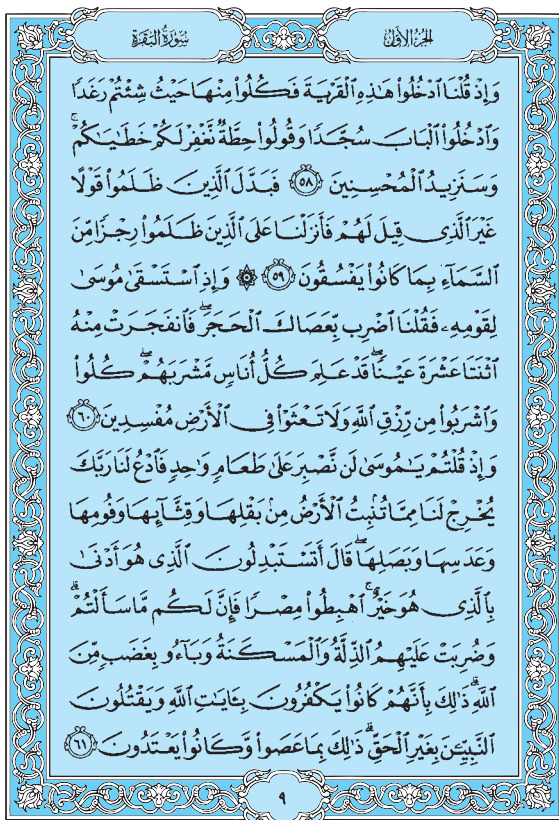 الجزء الأول
سورة البقرة
وَإِذْ قُلْنَا ٱدْخُلُوا۟ هَٰذِهِ ٱلْقَرْيَةَ فَكُلُوا۟ مِنْهَا حَيْثُ شِئْتُمْ رَغَدًا
وَٱدْخُلُوا۟ ٱلْبَابَ سُجَّدًا وَقُولُوا۟ حِطَّةٌ نَّغْفِرْ لَكُمْ خَطَٰيَٰكُمْ ۚ
وَسَنَزِيدُ ٱلْمُحْسِنِينَ ٥٨ فَبَدَّلَ ٱلَّذِينَ ظَلَمُوا۟ قَوْلًا
غَيْرَ ٱلَّذِى قِيلَ لَهُمْ فَأَنزَلْنَا عَلَى ٱلَّذِينَ ظَلَمُوا۟ رِجْزًا مِّنَ
ٱلسَّمَآءِ بِمَا كَانُوا۟ يَفْسُقُونَ ٥٩ ۞ وَإِذِ ٱسْتَسْقَىٰ مُوسَىٰ
لِقَوْمِهِۦ فَقُلْنَا ٱضْرِب بِّعَصَاكَ ٱلْحَجَرَ ۖ فَٱنفَجَرَتْ مِنْهُ
ٱثْنَتَا عَشْرَةَ عَيْنًا ۖ قَدْ عَلِمَ كُلُّ أُنَاسٍ مَّشْرَبَهُمْ ۖ كُلُوا۟
وَٱشْرَبُوا۟ مِن رِّزْقِ ٱللَّهِ وَلَا تَعْثَوْا۟ فِى ٱلْأَرْضِ مُفْسِدِينَ ٦٠
وَإِذْ قُلْتُمْ يَٰمُوسَىٰ لَن نَّصْبِرَ عَلَىٰ طَعَامٍ وَٰحِدٍ فَٱدْعُ لَنَا رَبَّكَ
يُخْرِجْ لَنَا مِمَّا تُنۢبِتُ ٱلْأَرْضُ مِنۢ بَقْلِهَا وَقِثَّآئِهَا وَفُومِهَا
وَعَدَسِهَا وَبَصَلِهَا ۖ قَالَ أَتَسْتَبْدِلُونَ ٱلَّذِى هُوَ أَدْنَىٰ
بِٱلَّذِى هُوَ خَيْرٌ ۚ ٱهْبِطُوا۟ مِصْرًا فَإِنَّ لَكُم مَّا سَأَلْتُمْ ۗ
وَضُرِبَتْ عَلَيْهِمُ ٱلذِّلَّةُ وَٱلْمَسْكَنَةُ وَبَآءُو بِغَضَبٍ مِّنَ
ٱللَّهِ ۗ ذَٰلِكَ بِأَنَّهُمْ كَانُوا۟ يَكْفُرُونَ بِـَٔايَٰتِ ٱللَّهِ وَيَقْتُلُونَ
ٱلنَّبِيِّـۧنَ بِغَيْرِ ٱلْحَقِّ ۗ ذَٰلِكَ بِمَا عَصَوا۟ وَّكَانُوا۟ يَعْتَدُونَ ٦١
٩